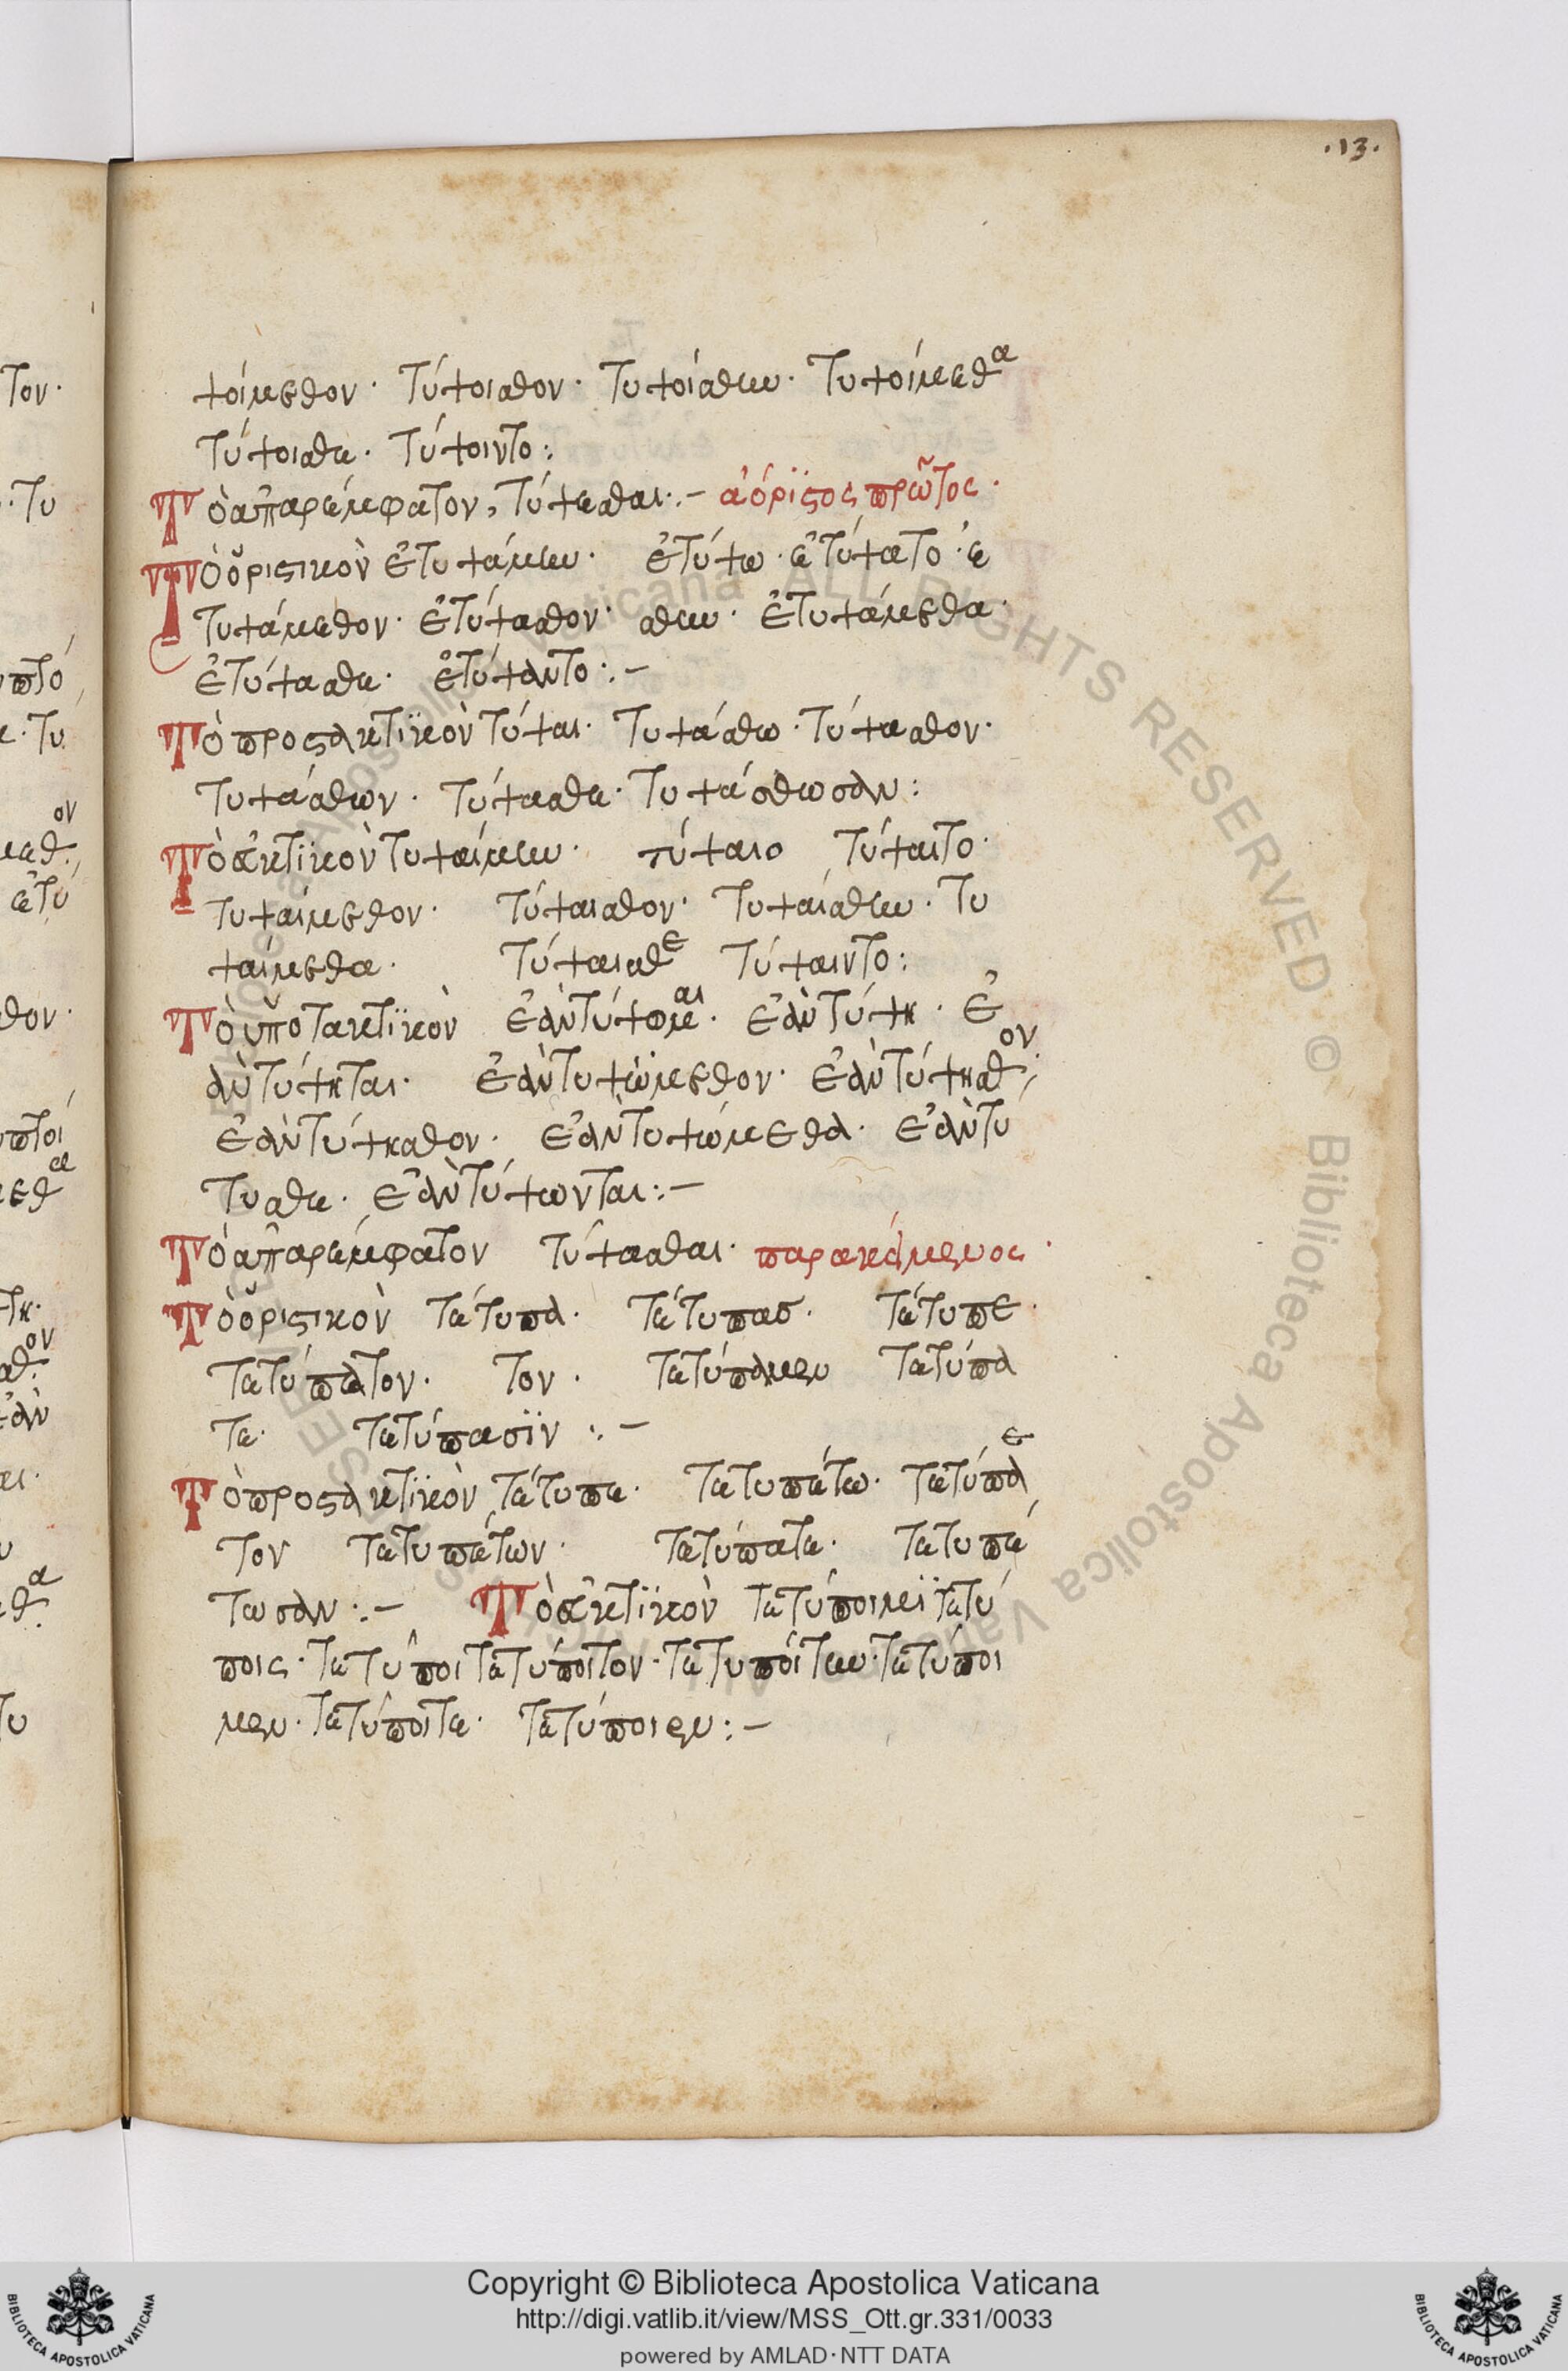 .13.
ψοίμεθον· τύψοισθον· τυψοίσθην· τυψοίμεθα
τύψοισθε· τύψοιντο:
Τὸ ἀπαρέμφατον, τύψεσθαι:- ἀόριστος πρῶτος·
Τὸ ὁριστικὸν ἐτυψάμην· ἐτύψω· ἐτύψατο· ἐ
τυψάμεθον· ἐτύψασθον· σθην· ἐτυψάμεθα·
ἐτύψασθε· ἐτύψαντο:-
Τὸ προστακτϊκὸν τύψαι· τυψάσθω· τύψασθον·
τυψάσθων· τύψασθε· τυψάσθωσαν:
Τὸ εὐκτϊκὸν τυψαίμην· τύψαιο τύψαιτο·
τυψαίμεθον· τύψαισθον· τυψαίσθην· τυ
ψαίμεθα· τύψαισθε τύψαιντο:
Τὸ ὑποτακτϊκὸν ἐὰν τύψωμαι· ἐὰν τύψη· ἐ
ὰν τύψηται· ἐὰν τυψώμεθον· ἐὰν τύψησθον·
ἐὰν τύψησθον· ἐὰν τυψώμεθα· ἐὰν τύ
τυσθε· ἐὰν τύψωνται:-
Τὸ ἀπαρέμφατον τύψασθαι· παρακείμενος·
Τὸ ὁριστικὸν τέτυπα· τέτυπας· τέτυπε·
τετύπατον· τον· τετύπαμεν τετύπα
τε· τετύπασϊν:-
Τὸ προστακτϊκὸν τέτυπε· τετυπέτω· τετύπε
τον τετυπέτων· τετύπατε· τετυπέ
τωσαν:- Τὸ εὐκτϊκὸν τετύποιμϊ τετύ
ποις· τετύποι τετύποιτον· τετυποίτην· τετύποι
μεν· τετύποιτε· τετύποιεν:-
Copyright © Biblioteca Apostolica Vaticana
http://digi.vatlib.it/view/MSS_Ott.gr.331/0033
powered by AMLAD·NTT DATA